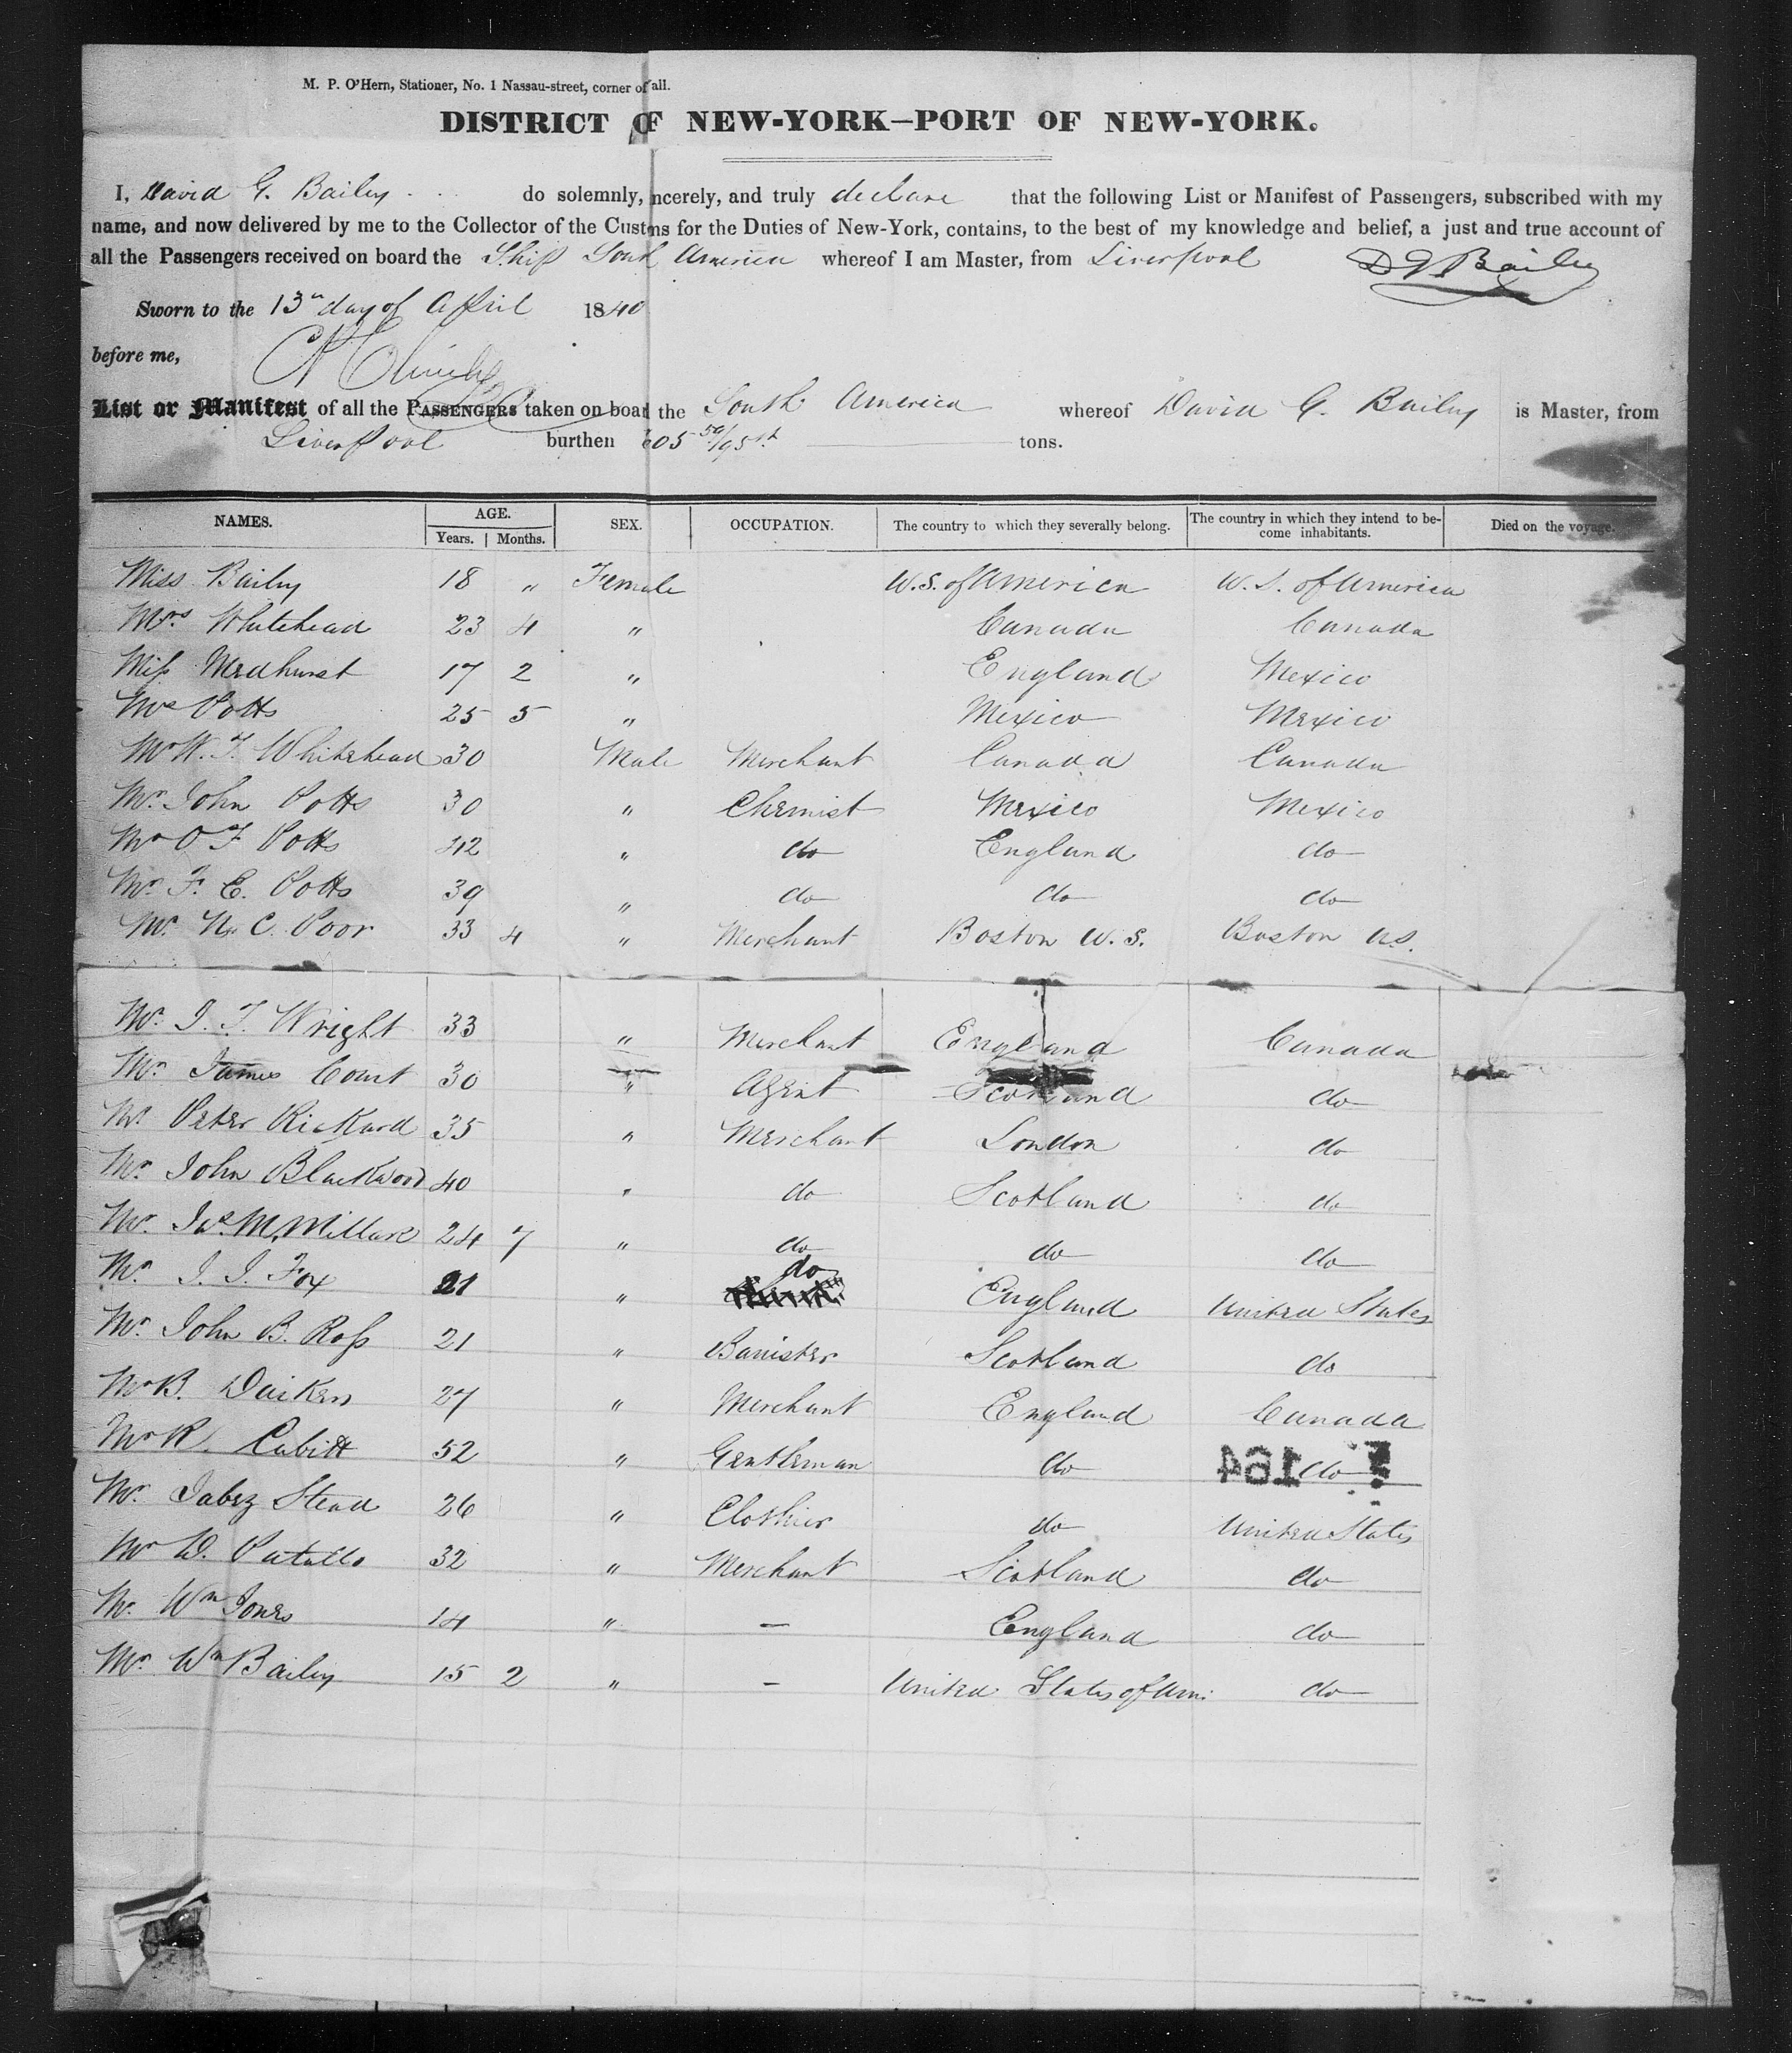 M. P. O'Hern, Stationer, No. 1 Nassau-street, corner of all.
DISTRICT OF NEW-YORK—PORT OF NEW-YORK.
I, David G. Bailey do solemnly, ncerely, and truly declare that the following List or Manifest of Passengers, subscribed with my
name, and now delivered by me to the Collector of the Customs for the Duties of New-York, contains, to the best of my knowledge and belief, a just and true account of
all the Passengers received on board the Ship South America whereof I am Master, from Liverpool D G Bailey
Sworn to the 13th day of April 1840
before me,
List or Manifest of all the PASSENGERS taken on board the South America whereof David G. Bailey is Master, from
Liverpool burthen 605 50/95th tons.
NAMES. AGE. SEX. OCCUPATION. The country to which they severally belong. The country in which they intend to be- Died on the voyage.
Years. Months. come inhabitants.
Miss Bailey 18 " Female U.S. of America U.S. of America
Mrs Whitehead 23 4 " Canada Canada
Miss Medhurst 17 2 " England Mexico
Mrs Potts 25 5 " Mexico Mexico
Mr W. F. Whitehead 30 Male Merchant Canada Canada
Mr. John Potts 30 " Chemist Mexico Mexico
Mr O F Potts 42 " do England do
Mr. F. E. Potts 39 " do do do
Mr. N. C. Poor 33 4 " Merchant Boston U.S. Boston U.S.
Mr. I. F. Wright 33 " Merchant England Canada
Mr. James Court 30 " Agent Scotland do
Mr. Peter Rickard 35 " Merchant London do
Mr. John Blackwood 40 " do Scotland do
Mr. Jas. McMillan 24 7 " do do do
Mr. I. I. Fox 21 " do England United States
Mr. John B. Ross 21 " Barrister Scotland do
Mr B. Daikers 27 " Merchant England Canada
Mr R. Cubitt 52 " Gentleman do do
164
Mr. Jabez Stead 26 " Clothier do United States
Mr D. Patullo 32 " Merchant Scotland do
Mr. Wm Jones 14 " — England do
Mr. Wm Bailey 15 2 " — United States of Am. do